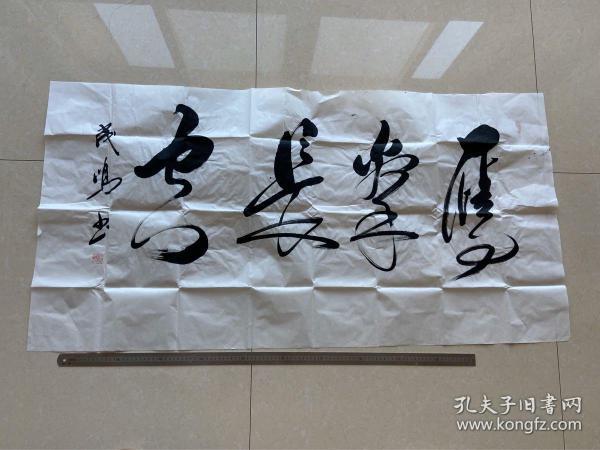 鷹擊長空
鳴书
孔夫子旧书网
www.kongfz.com